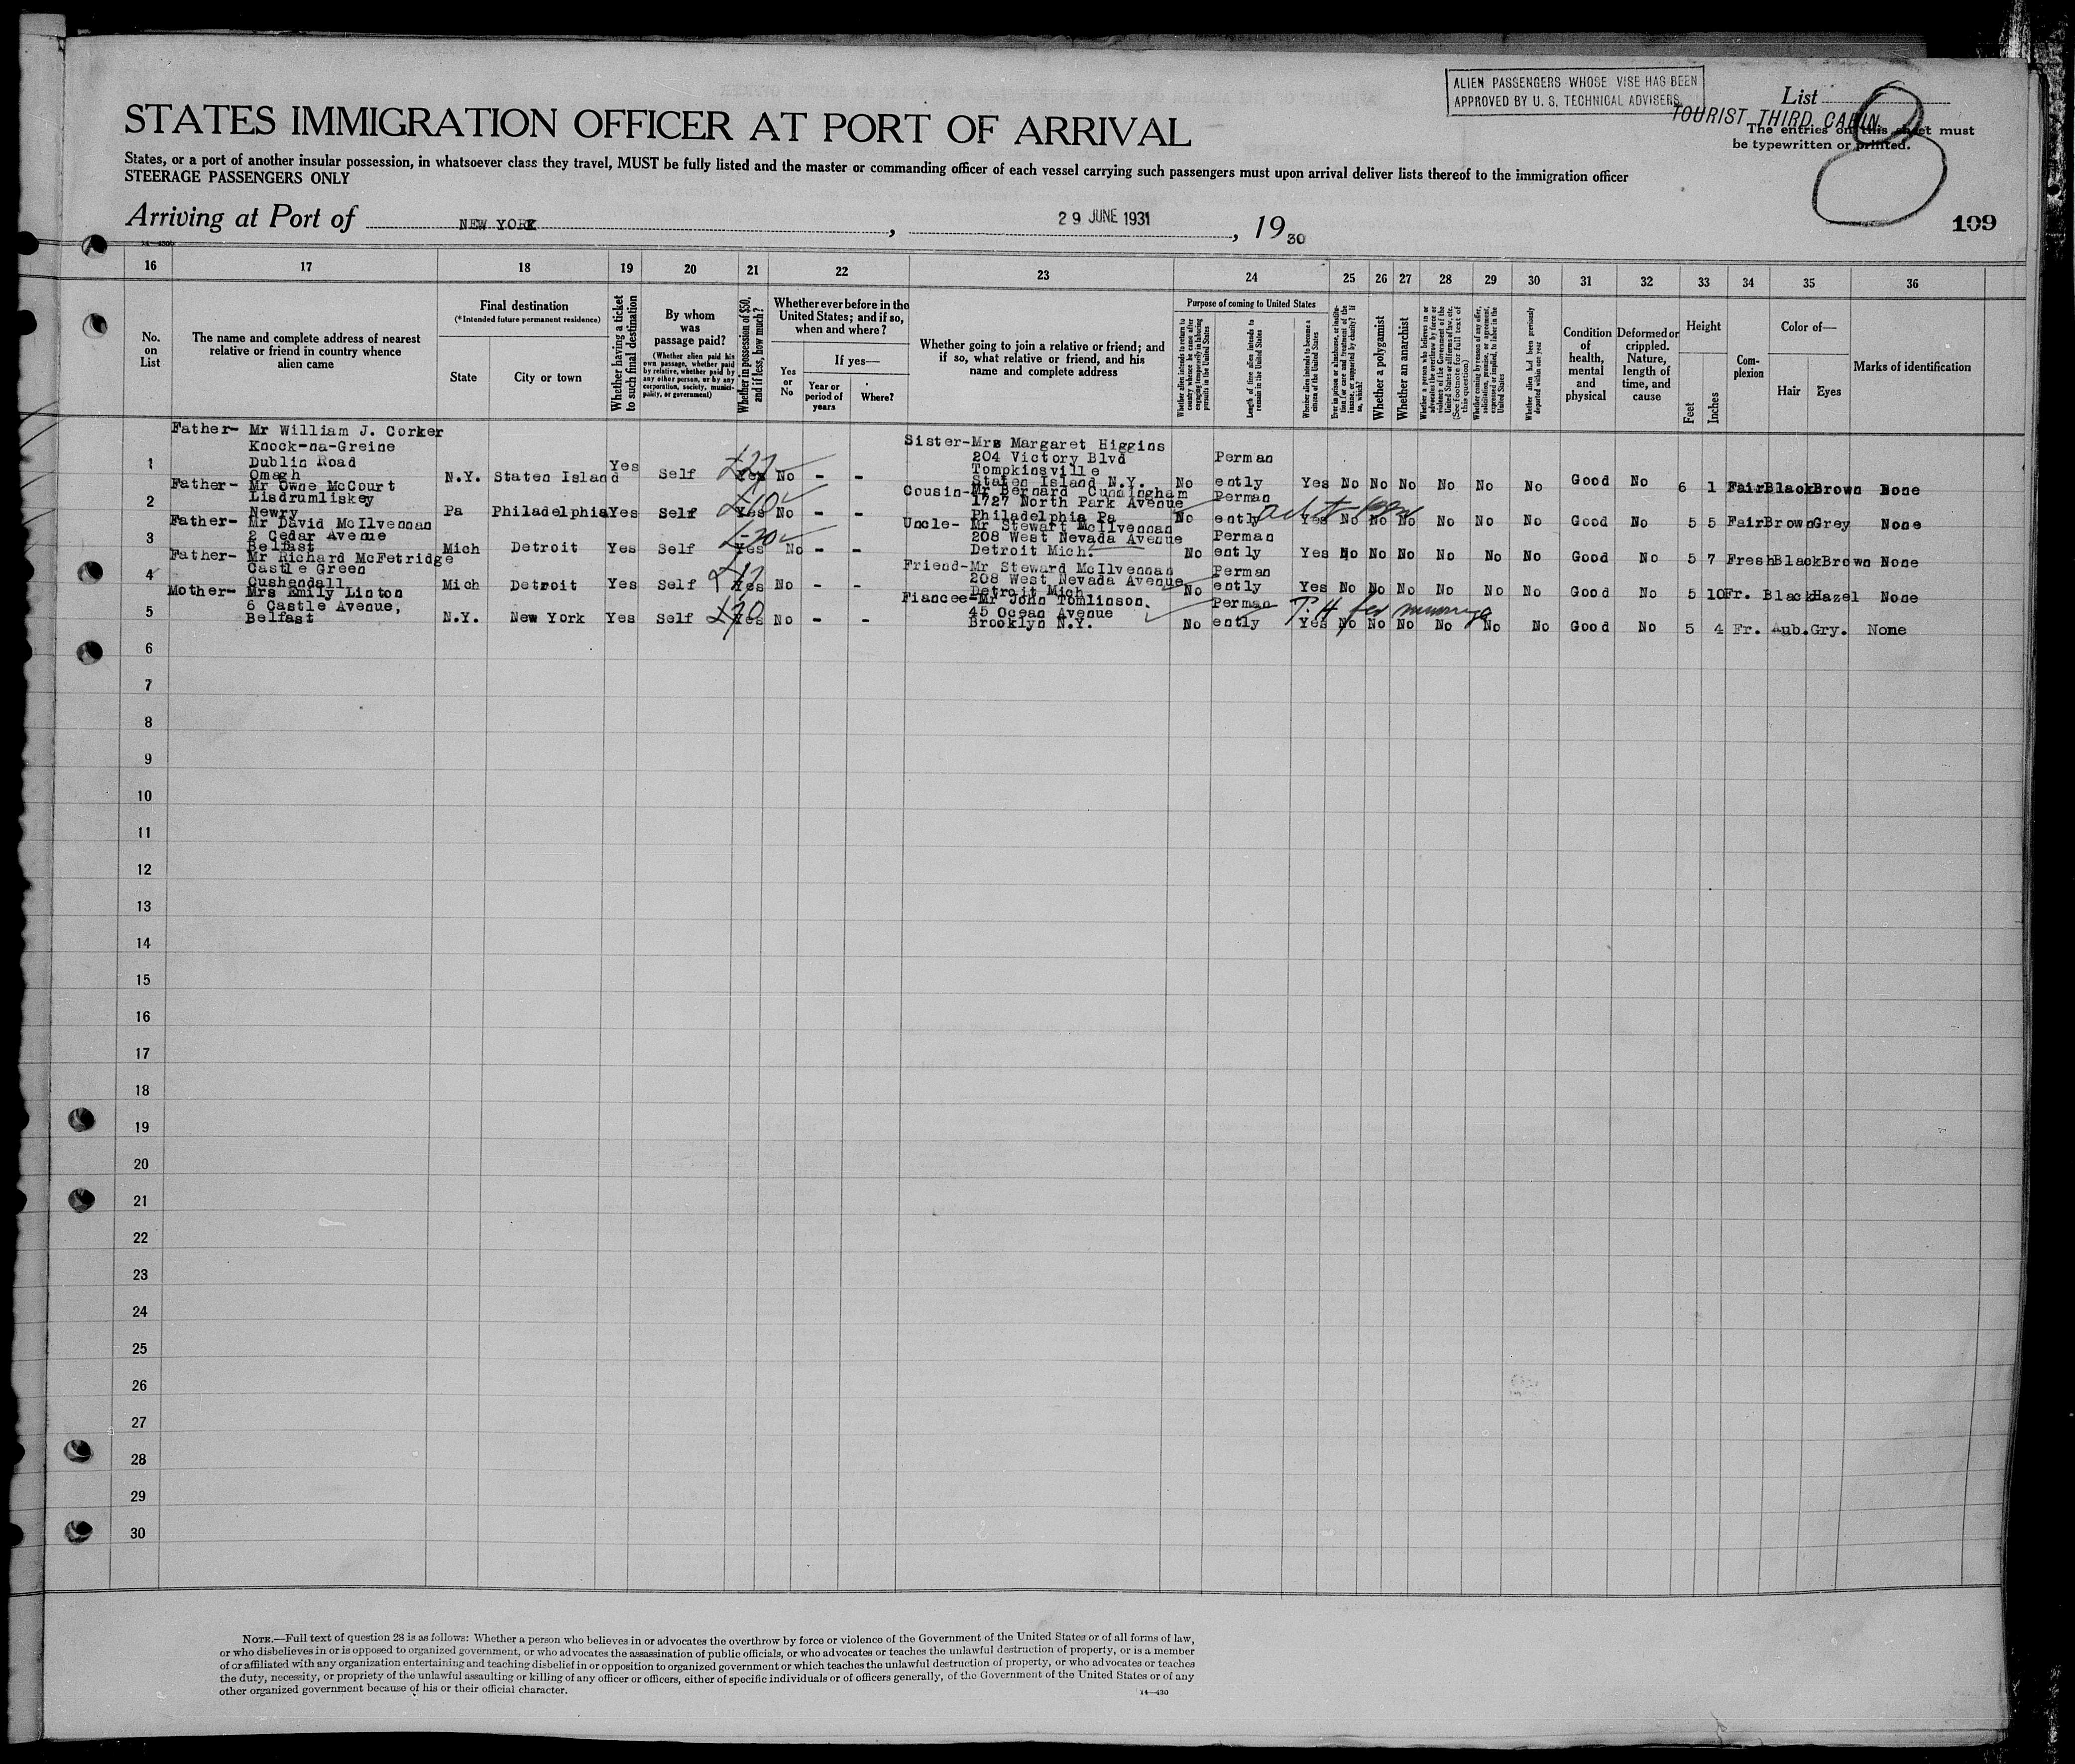 ALIEN PASSENGERS WHOSE VISE HAS BEEN
APPROVED BY U. S. TECHNICAL ADVISERS.
List
TOURIST THIRD CABIN
The entries on this sheet must
be typewritten or printed.
8
STATES IMMIGRATION OFFICER AT PORT OF ARRIVAL
States, or a port of another insular possession, in whatsoever class they travel, MUST be fully listed and the master or commanding officer of each vessel carrying such passengers must upon arrival deliver lists thereof to the immigration officer
STEERAGE PASSENGERS ONLY
Arriving at Port of NEW YORK, 29 JUNE 1931, 19 30
109
14—430b
16 17 18 19 20 21 22 23 24 25 26 27 28 29 30 31 32 33 34 35 36
No. on List
The name and complete address of nearest relative or friend in country whence alien came
Final destination
(*Intended future permanent residence)
State
City or town
Whether having a ticket to such final destination
By whom was passage paid?
(Whether alien paid his own passage, whether paid by relative, whether paid by any other person, or by any corporation, society, municipality, or government)
Whether in possession of $50, and if less, how much?
Whether ever before in the United States; and if so, when and where?
Yes or No
If yes—
Year or period of years
Where?
Whether going to join a relative or friend; and if so, what relative or friend, and his name and complete address
Purpose of coming to United States
Whether alien intends to return to country whence he came after engaging temporarily in laboring pursuits in the United States
Length of time alien intends to remain in the United States
Whether alien intends to become a citizen of the United States
Ever in prison or almshouse, or institution for care and treatment of the insane, or supported by charity? If so, which?
Whether a polygamist
Whether an anarchist
Whether a person who believes in or advocates the overthrow by force or violence of the Government of the United States or all forms of law, etc. (See footnote for full text of this question)
Whether coming by reason of any offer, solicitation, promise, or agreement, expressed or implied, to labor in the United States
Whether alien had been previously deported within one year
Condition of health, mental and physical
Deformed or crippled. Nature, length of time, and cause
Height
Feet
Inches
Complexion
Color of—
Hair
Eyes
Marks of identification
Father- Mr William J. Corker
Knock-na-Greine
Dublin Road
Omagh
1 N.Y. Staten Island Yes Self £27 Yes No - -
Sister-Mrs Margaret Higgins
204 Victory Blvd
Tompkinsville
Staten Island N.Y.
No Permanently Yes No No No No No No Good No 6 1 Fair Black Brown None
Father- Mr Owne McCourt
Lisdrumliskey
Newry
2 Pa Philadelphia Yes Self £10 Yes No - -
Cousin-Mr Bernard Cunningham
1727 North Park Avenue
Philadelphia Pa
No Permanently Yes No No No No No No Good No 5 5 Fair Brown Grey None
Father- Mr David McIlvennan
2 Cedar Avenue
Belfast
3 Mich Detroit Yes Self £30 Yes No - -
Uncle- Mr Stewart McIlvennan
208 West Nevada Avenue
Detroit Mich.
No Permanently Yes No No No No No No Good No 5 7 Fresh Black Brown None
Father- Mr Richard McFetridge
Castle Green
Cushendall
4 Mich Detroit Yes Self Yes No - -
Friend-Mr Steward McIlvennan
208 West Nevada Avenue
Detroit Mich.
No Permanently Yes No No No No No No Good No 5 10 Fr. Black Hazel None
Mother- Mrs Emily Linton
6 Castle Avenue,
Belfast
5 N.Y. New York Yes Self £20 Yes No - -
Fiancee-Mr John Tomlinson.
45 Ocean Avenue
Brooklyn N.Y.
No Permanently Yes No No No No No No Good No 5 4 Fr. Aub. Gry. None
6
7
8
9
10
11
12
13
14
15
16
17
18
19
20
21
22
23
24
25
26
27
28
29
30
NOTE.—Full text of question 28 is as follows: Whether a person who believes in or advocates the overthrow by force or violence of the Government of the United States or of all forms of law,
or who disbelieves in or is opposed to organized government, or who advocates the assassination of public officials, or who advocates or teaches the unlawful destruction of property, or is a member
of or affiliated with any organization entertaining and teaching disbelief in or opposition to organized government or which teaches the unlawful destruction of property, or who advocates or teaches
the duty, necessity, or propriety of the unlawful assaulting or killing of any officer or officers, either of specific individuals or of officers generally, of the Government of the United States or of any
other organized government because of his or their official character.
14—430